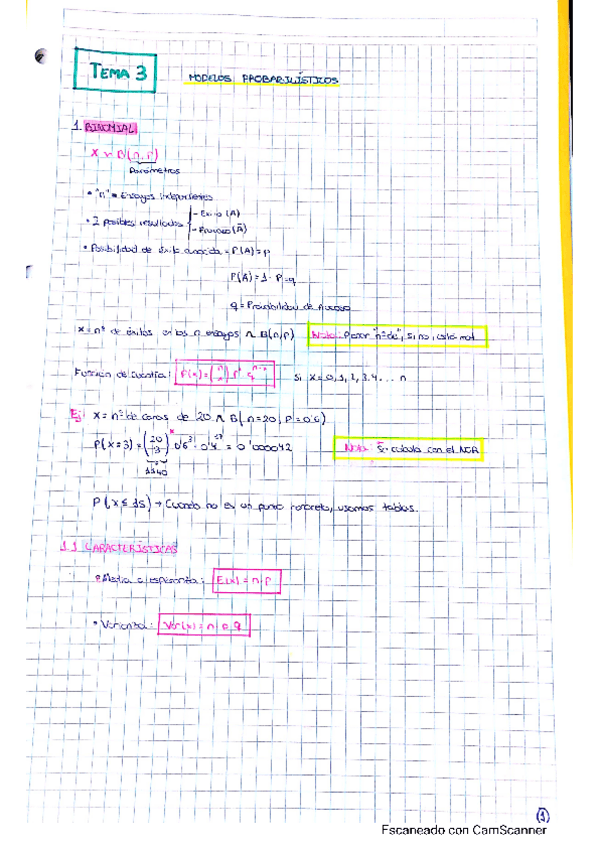 TEMA 3
MODELOS PROBABILÍSTICOS
1. BINOMIAL
X ~ B(n, p)
Parámetros
• "n" = Ensayos independientes
• 2 posibles resultados { - Éxito (A)
- Fracaso (Ā)
• Posibilidad de éxito conocida = P(A) = p
P(Ā) = 1 - P = q
q = Probabilidad de fracaso
X = nº de éxitos en los n ensayos ~ B(n, p) Nota: Poner "nº de", si no, está mal.
Función de cuantía: P(x) = (n x) p^x q^n-x si X = 0, 1, 2, 3, 4 ... n
Ej: X = nº de caras de 20 ~ B(n = 20, P = 0'6)
P(X = 3) = (20 3) 0'6^3 · 0'4^17 = 0'000042 Nota: Se calcula con el NCR
1140
P(X ≤ 15) → Cuando no es un punto concreto, usamos tablas.
1.1 CARACTERÍSTICAS
• Media o esperanza: E(x) = n · p
• Varianza: Var(x) = n · p · q
(1)
Escaneado con CamScanner